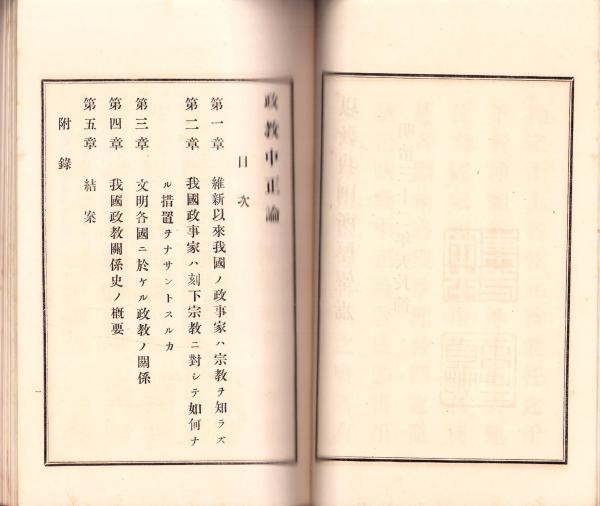 政教中正論
目次
第一章 維新以來我國ノ政事家ハ宗教ヲ知ラズ
第二章 我國政事家ハ刻下宗教ニ對シテ如何ナ
ル措置ヲナサントスルカ
第三章 文明各國ニ於ケル政教ノ關係
第四章 我國政教關係史ノ概要
第五章 結案
附錄